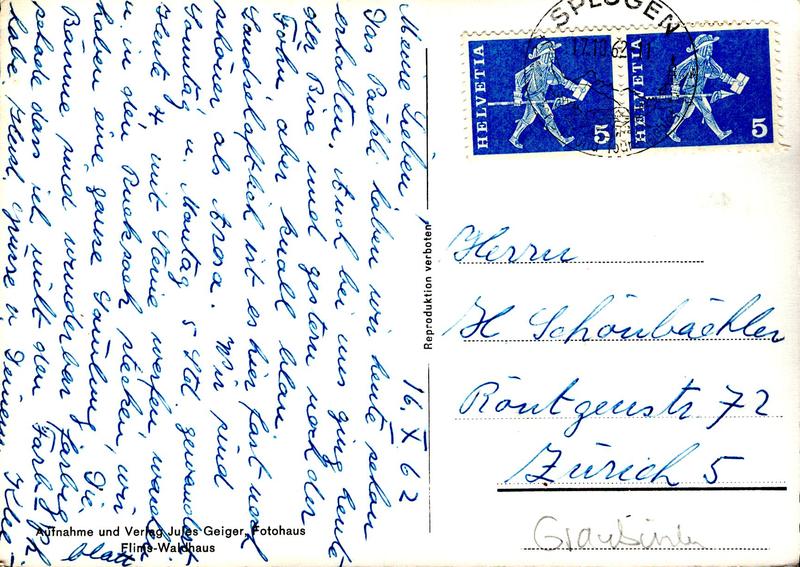 Meine Lieben, 16. X 62
Das Päckli haben wir heute schon
erhalten. Auch bei uns ging heute
der Bise und gestern noch der
Föhn aber knall blau.
Landschaftlich ist es hier fast noch
schöner als Arosa. Wir sind
Sonntag u. Montag 5 Std gewandert
Heute 4 mit Steine werfen,
u. in den Rucksack stecken, wir
haben eine ganze Samlung. Die
Bäume sind wunderbar farbig
schade dass ich nicht den
habe. Herzl. Grüsse v. Deinem Klee-
blatt
Aufnahme und Verlag Jules Geiger, Fotohaus
Flims-Waldhaus
Reproduktion verboten
SPLÜGEN
17.10.62
HELVETIA 5
HELVETIA 5
Herrn
H Schönbächler
Röntgenstr 72
Zürich 5
Graubünden